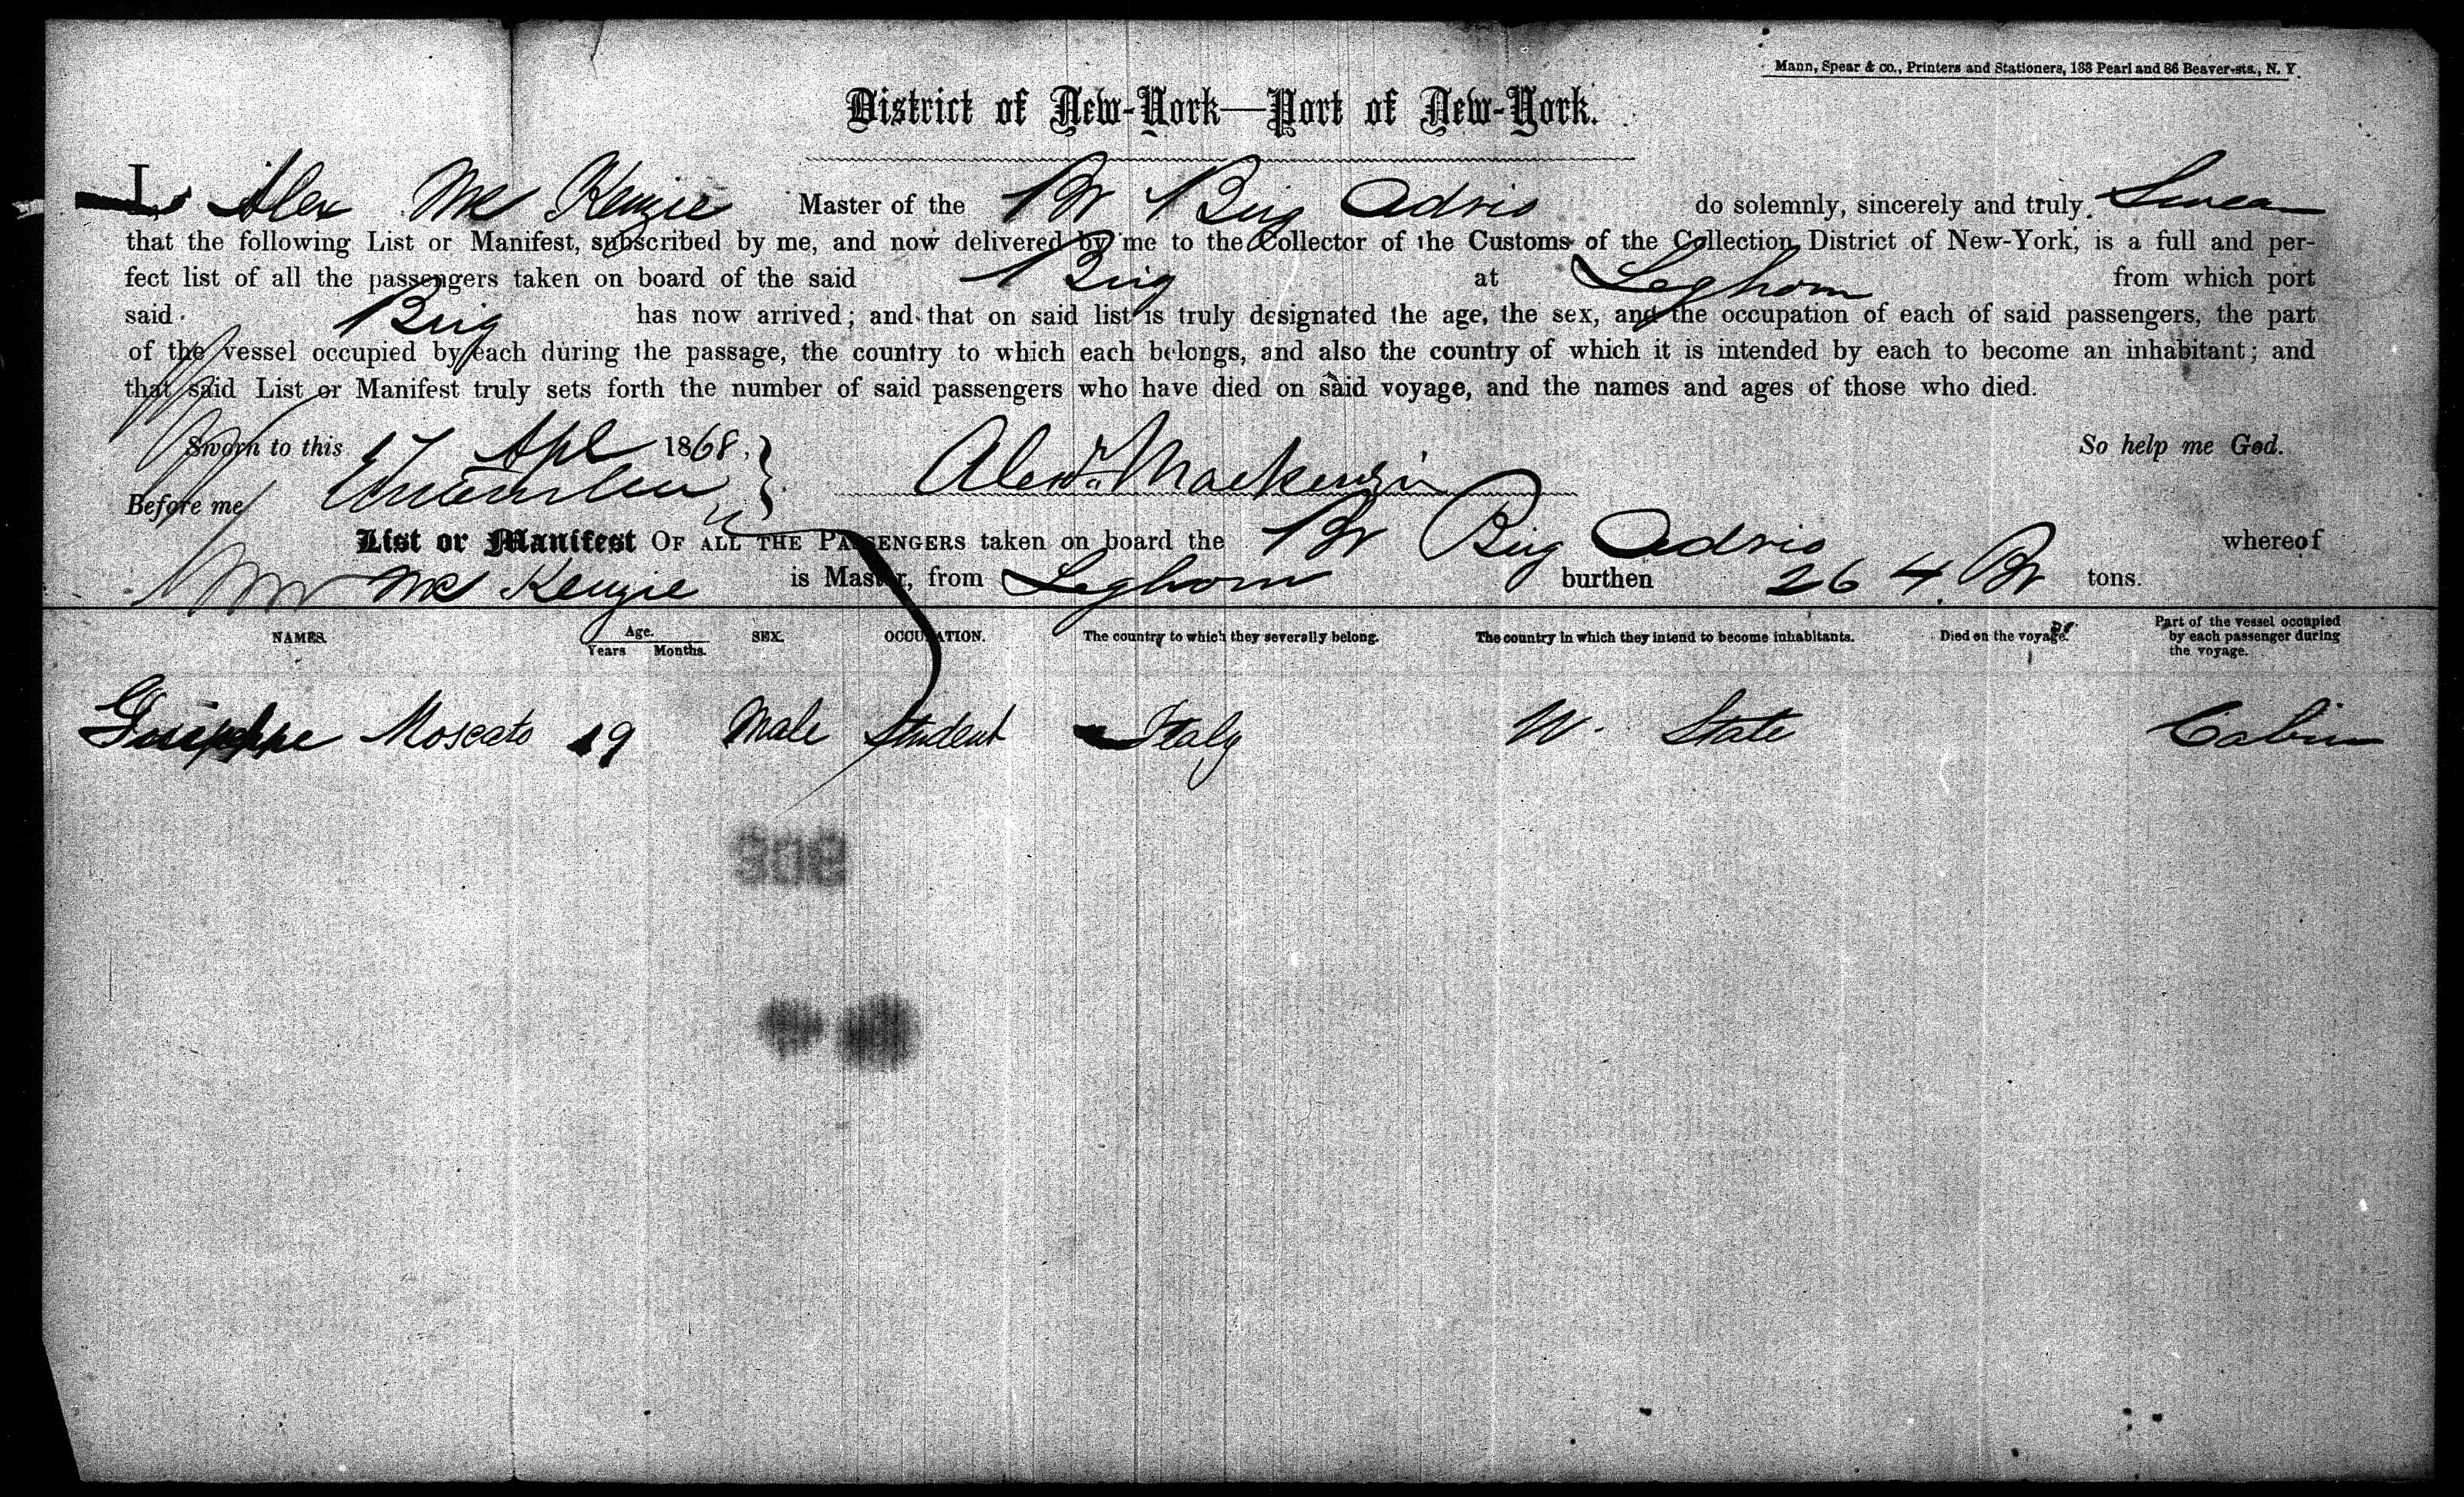 Mann, Spear & co., Printers and Stationers, 133 Pearl and 86 Beaver-sts., N. Y.
District of New-York—Port of New-York.
I, Alex Mc Kenzie Master of the Br Brig Adrio do solemnly, sincerely and truly Swear
that the following List or Manifest, subscribed by me, and now delivered by me to the Collector of the Customs of the Collection District of New-York, is a full and per-
fect list of all the passengers taken on board of the said Brig at Leghorn from which port
said Brig has now arrived; and that on said list is truly designated the age, the sex, and the occupation of each of said passengers, the part
of the vessel occupied by each during the passage, the country to which each belongs, and also the country of which it is intended by each to become an inhabitant; and
that said List or Manifest truly sets forth the number of said passengers who have died on said voyage, and the names and ages of those who died.
Sworn to this Apl 1868, So help me God.
Before me Alexr. Mackenzie
List or Manifest OF ALL THE PASSENGERS taken on board the Br Brig Adrio whereof
Mc Kenzie is Master, from Leghorn burthen 264 Br tons.
NAMES. Age. Years Months. SEX. OCCUPATION. The country to which they severally belong. The country in which they intend to become inhabitants. Died on the voyage. Part of the vessel occupied by each passenger during the voyage.
Guiseppe Moscato 19 Male Student Italy W. State Cabin